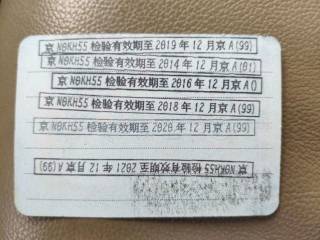 京 N0KH55 检验有效期至 2019 年 12 月京 A(99)
京 N0KH55 检验有效期至 2014 年 12 月京 A(01)
京 N0KH55 检验有效期至 2016 年 12 月京 A()
京 N0KH55 检验有效期至 2018 年 12 月京 A(99)
京 N0KH55 检验有效期至 2020 年 12 月京 A(99)
京 N0KH55 检验有效期至 2021 年 12 月京 A(99)